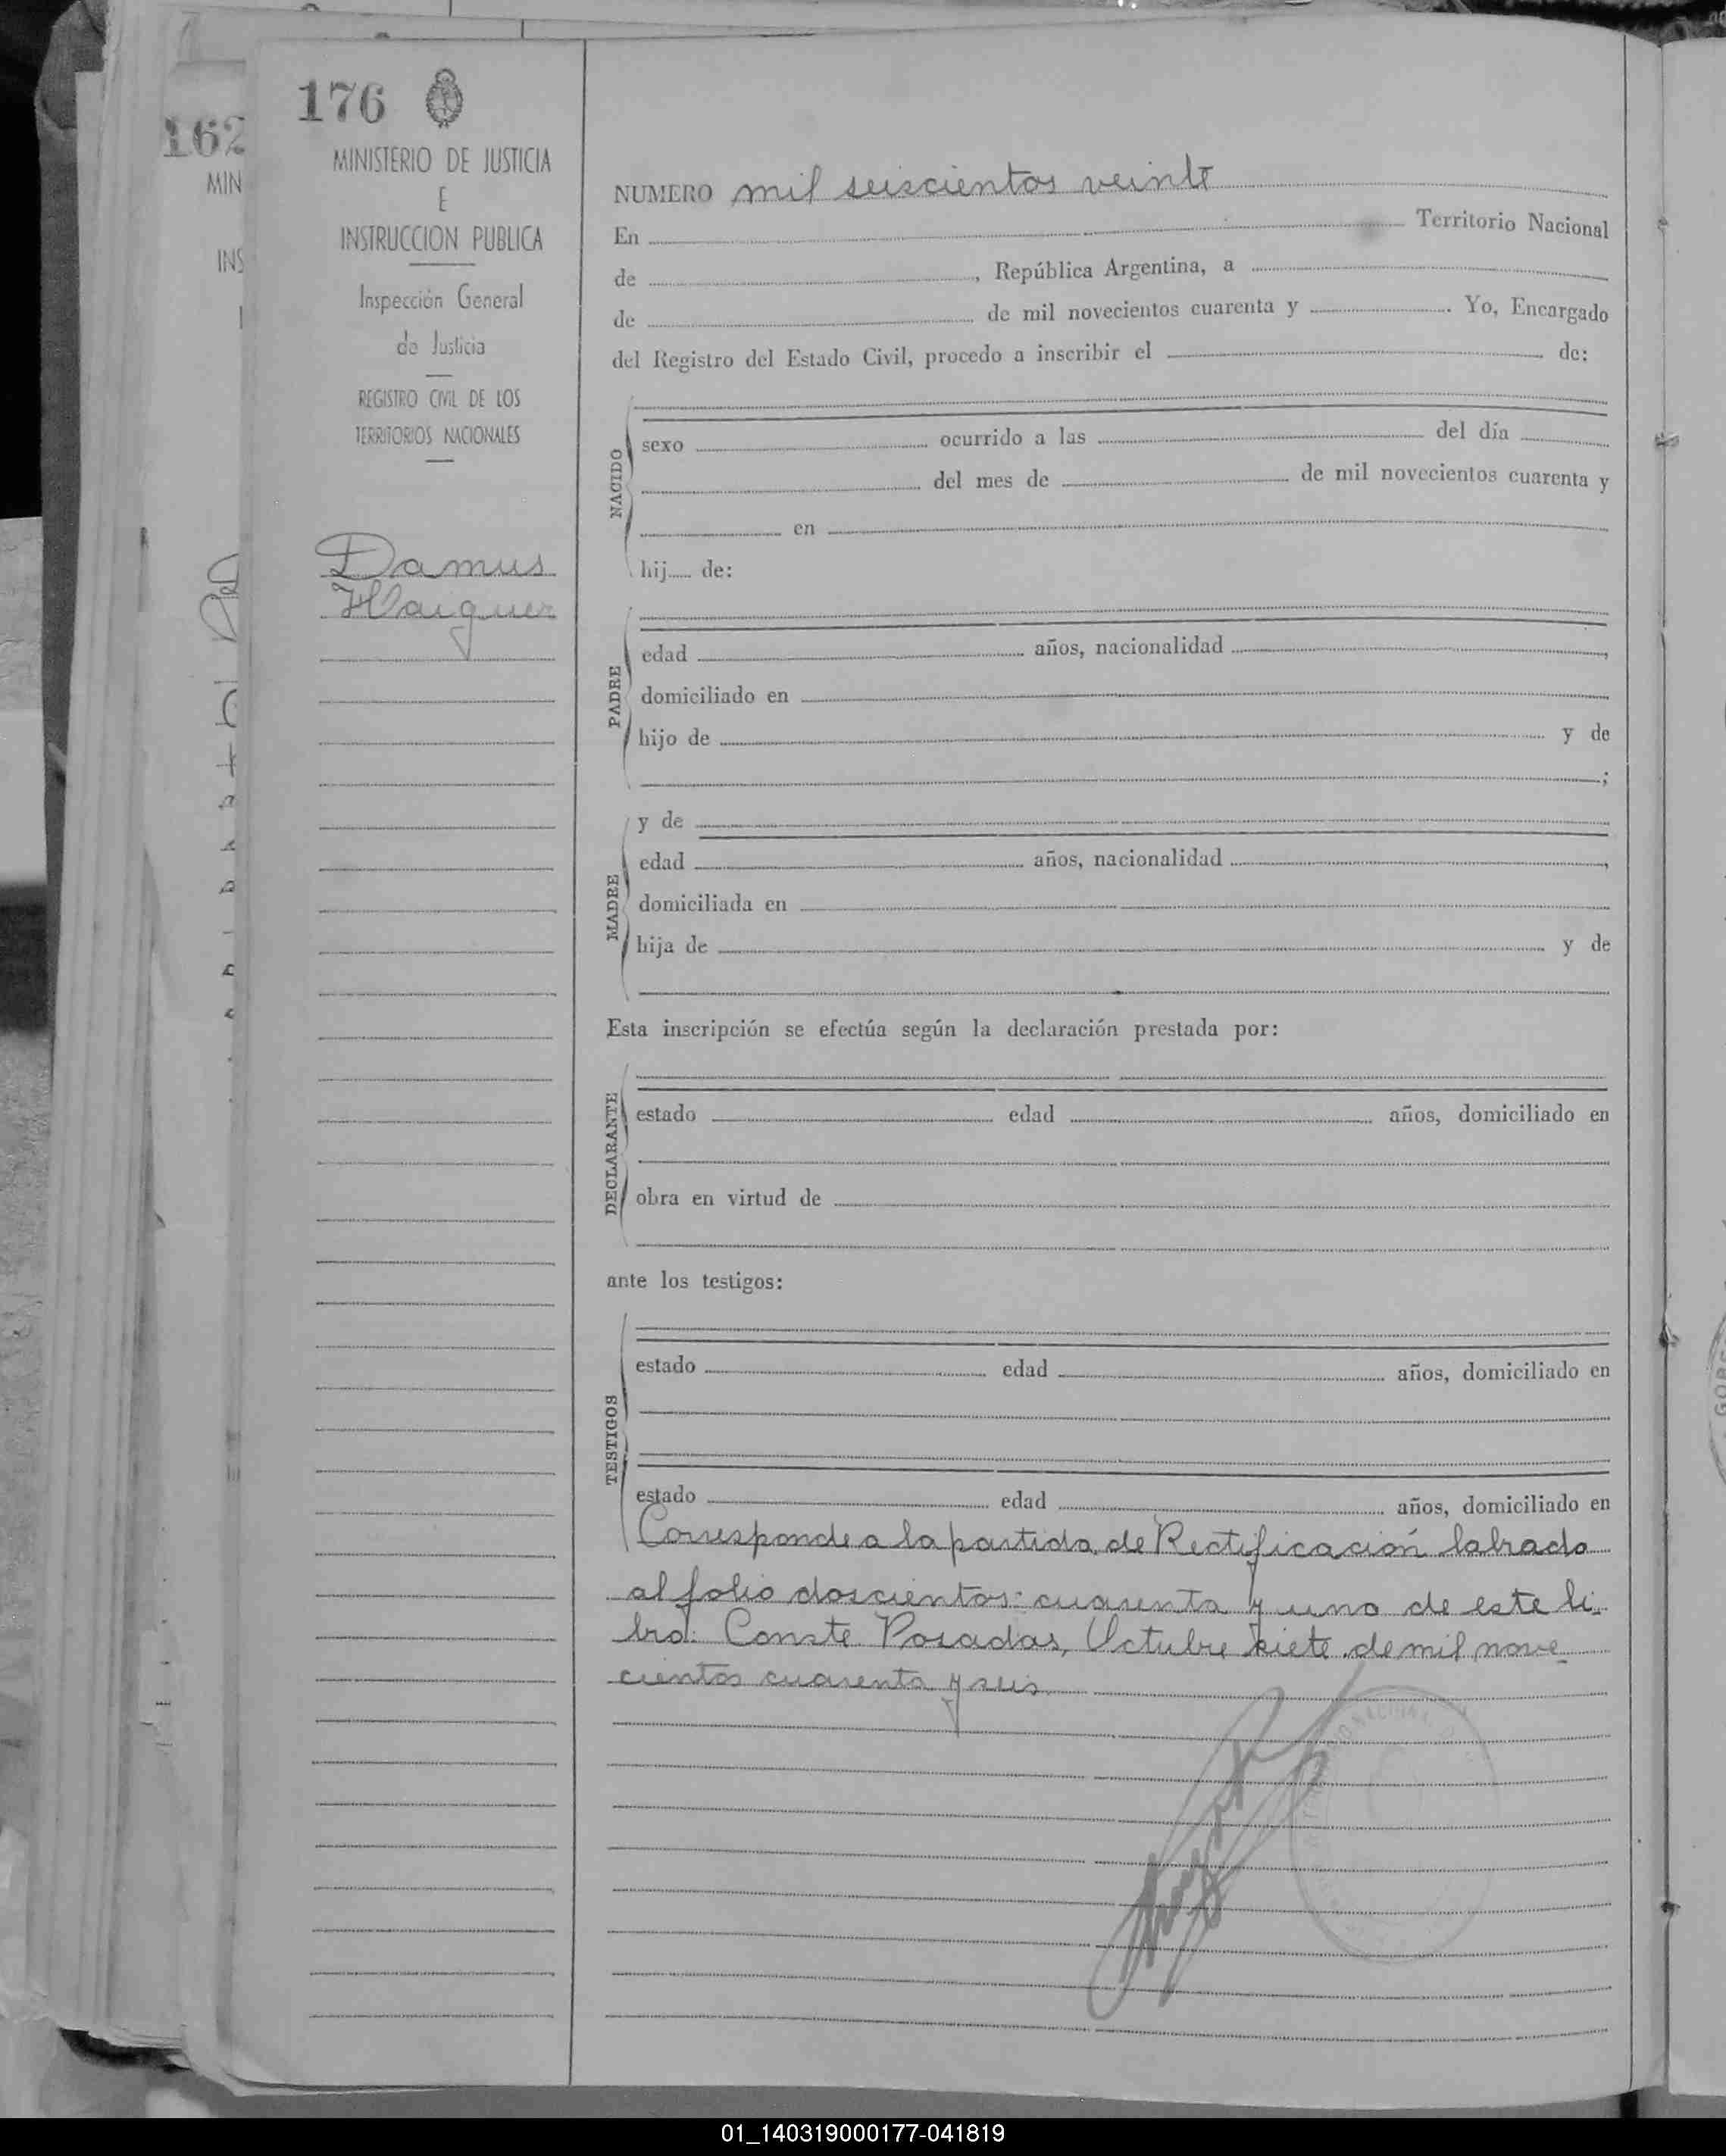 176
MINISTERIO DE JUSTICIA
E
INSTRUCCION PUBLICA
Inspección General
de Justicia
REGISTRO CIVIL DE LOS
TERRITORIOS NACIONALES
Damus
162
MIN
INS
NUMERO mil seiscientos veinte
En Territorio Nacional
de , República Argentina, a
de de mil novecientos cuarenta y . Yo, Encargado
del Registro del Estado Civil, procedo a inscribir el de:
NACIDO
sexo ocurrido a las del día
del mes de de mil novecientos cuarenta y
en
hij de:
PADRE
edad años, nacionalidad ,
domiciliado en
hijo de y de
;
MADRE
y de
edad años, nacionalidad ,
domiciliada en
hija de y de
Esta inscripción se efectúa según la declaración prestada por:
DECLARANTE
estado edad años, domiciliado en
obra en virtud de
ante los testigos:
TESTIGOS
estado edad años, domiciliado en
estado edad años, domiciliado en
Corresponde a la partida de Rectificación labrado
al folio doscientos cuarenta y uno de este li-
bro. Conste Posadas, Octubre siete de mil nove-
cientos cuarenta y seis
01_140319000177-041819